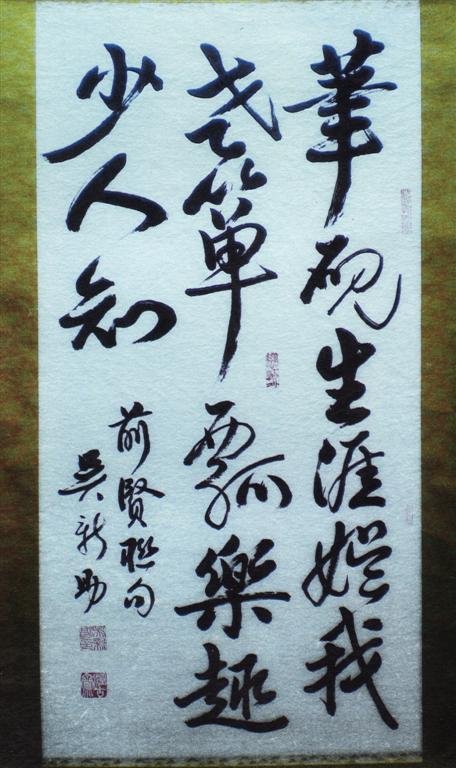 筆硯生涯娛我
老簞瓢樂趣
少人知
前賢聯句
吳新助